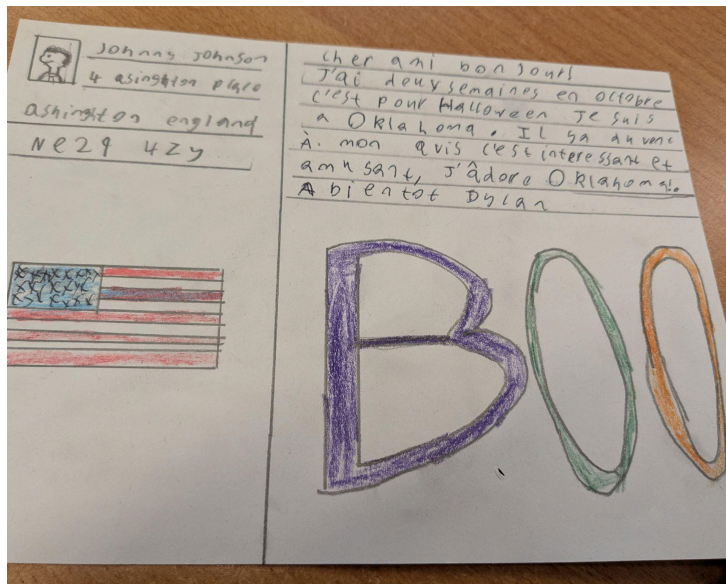 Johnny Johnson
4 asinghton place
ashington england
Ne29 4Zy
cher ami bonjours
J'ai douysemaines en octobre
c'est pour Halloween Je suis
a Oklahoma. Il ya du vent
À. mon avis c'est interessant et
amusant, J'âdore Oklahoma.
A bientot Dylan
BOO